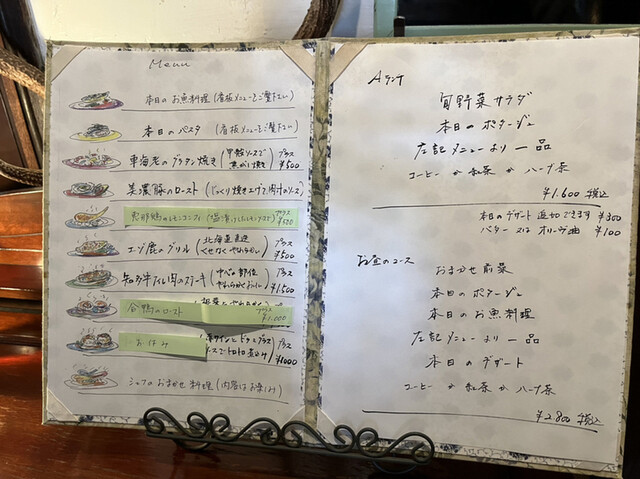 Menu
本日のお魚料理（看板メニューをご覧下さい）
本日のパスタ（看板メニューをご覧下さい）
車海老のグラタン焼き（甲殻ソースで 焦がし焼き）プラス ¥500
美濃豚のロースト（じっくり焼き上げて肉汁のソース）
プラス ¥500
エゾ鹿のグリル（北海道直送 くせなくやわらかい）プラス ¥500
知多牛フィレ肉のステーキ（やわらかくおいしい）プラス ¥1500
合鴨のロースト プラス ¥1,000
プラス ¥1000
シェフのおまかせ料理（内容はお楽しみ）
Aランチ
旬野菜サラダ
本日のポタージュ
左記メニューより一品
コーヒーか紅茶かハーブ茶
¥1,600 税込
本日のデザート追加できます ¥300
バター又はオリーヴ油 ¥100
お昼のコース
おまかせ前菜
本日のポタージュ
本日のお魚料理
左記メニューより一品
本日のデザート
コーヒーか紅茶かハーブ茶
¥2,800 税込